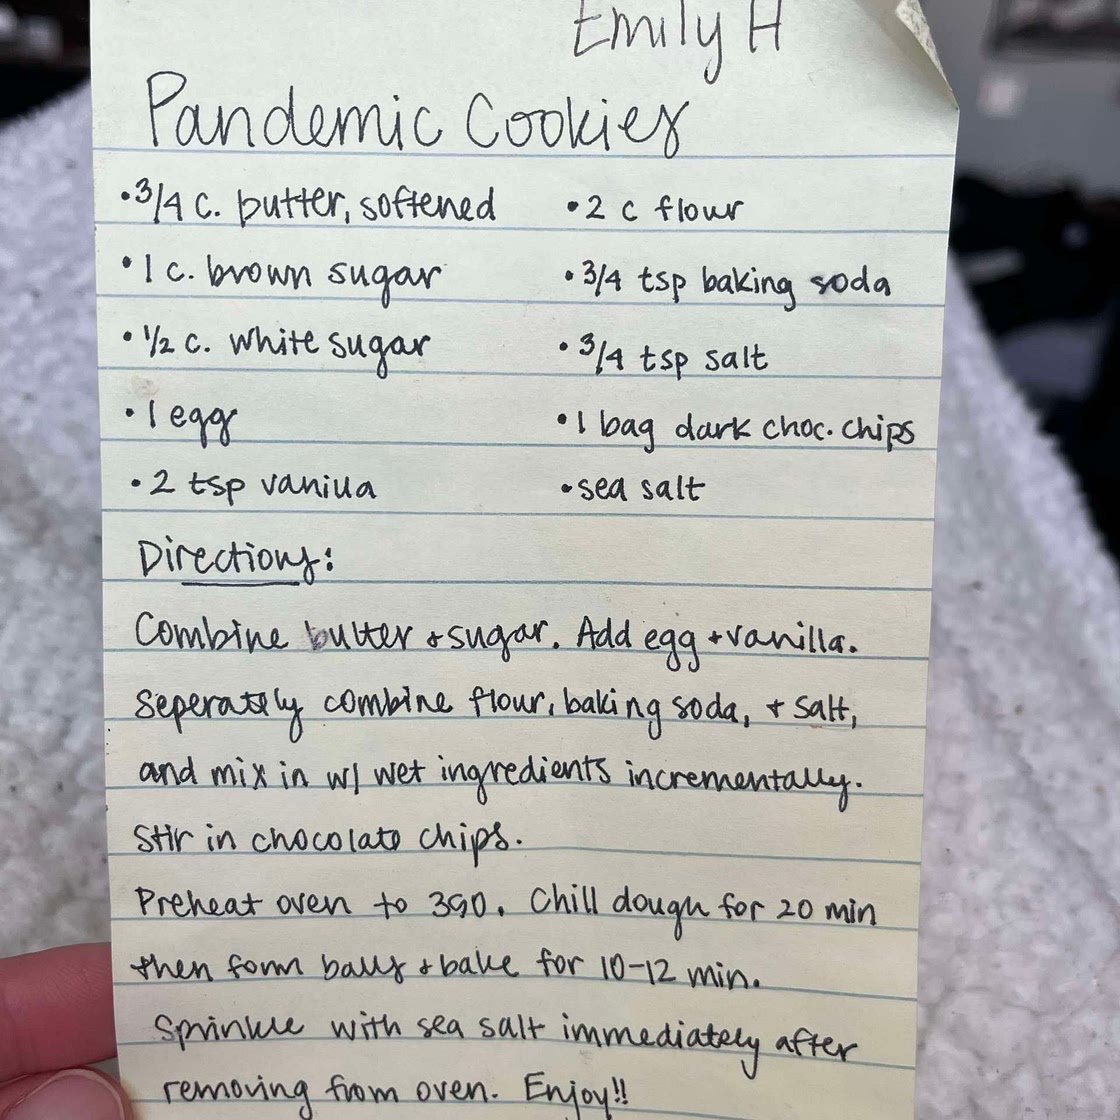 Emily H
Pandemic Cookies
•3/4 c. butter, softened
•2 c flour
•1 c. brown sugar
•3/4 tsp baking soda
•1/2 c. white sugar
•3/4 tsp salt
•1 egg
•1 bag dark choc. chips
•2 tsp vanilla
•sea salt
Directions:
Combine butter + sugar. Add egg + vanilla.
Seperately combine flour, baking soda, + salt,
and mix in w/ wet ingredients incrementally.
Stir in chocolate chips.
Preheat oven to 390. Chill dough for 20 min
then form balls + bake for 10-12 min.
Sprinkle with sea salt immediately after
removing from oven. Enjoy!!